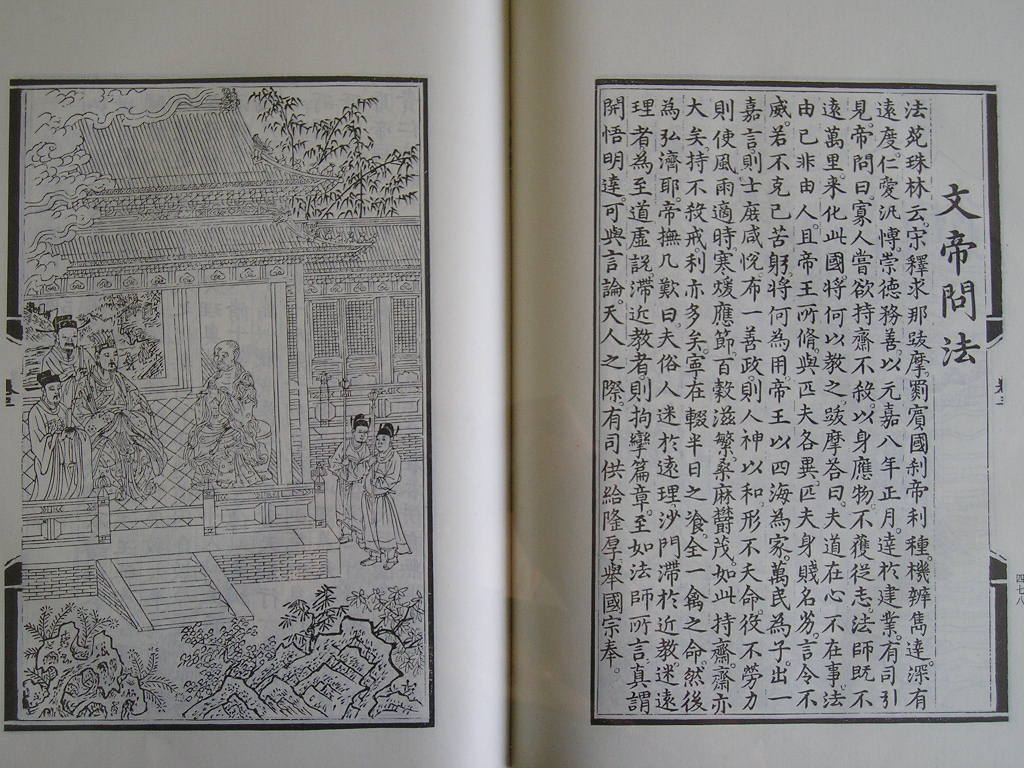 文帝問法
法苑珠林云。宋釋求那跋摩。罽賓國刹帝利種。機辨雋達。深有
遠度。仁愛汎愽。崇德務善。以元嘉八年正月。達於建業。有司引
見。帝問曰。寡人嘗欲持齋不殺。以身應物。不獲從志。法師既不
遠萬里。来化此國。將何以教之。跋摩荅曰。夫道在心。不在事。法
由己。非由人。且帝王所脩。與匹夫各異。匹夫身賤名劣。言令不
威。若不克己苦躬。將何為用。帝王以四海為家。萬民為子。出一
嘉言。則士庶咸悅。布一善政。則人神以和。形不夭命。役不勞力
則使風雨適時。寒煖應節。百穀滋繁。桑麻欝茂。如此持齋。齋亦
大矣。持不殺戒。利亦多矣。寧在輟半日之飡。全一禽之命。然後
為弘濟耶。帝撫几歎曰。夫俗人迷於遠理。沙門滯於近教。迷遠
理者。為至道虛説。滯近教者。則拘攣篇章。至如法師所言。真謂
開悟明達。可與言論。天人之際。有司供給隆厚。舉國宗奉。
卷三
四七八